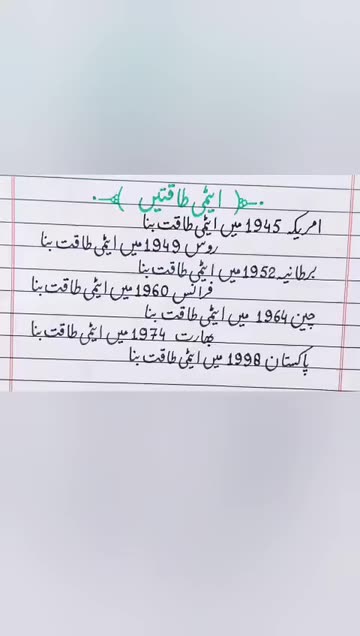 ایٹمی طاقتیں
امریکہ 1945 میں ایٹمی طاقت بنا
روس 1949 میں ایٹمی طاقت بنا
برطانیہ 1952 میں ایٹمی طاقت بنا
فرانس 1960 میں ایٹمی طاقت بنا
چین 1964 میں ایٹمی طاقت بنا
بھارت 1974 میں ایٹمی طاقت بنا
پاکستان 1998 میں ایٹمی طاقت بنا